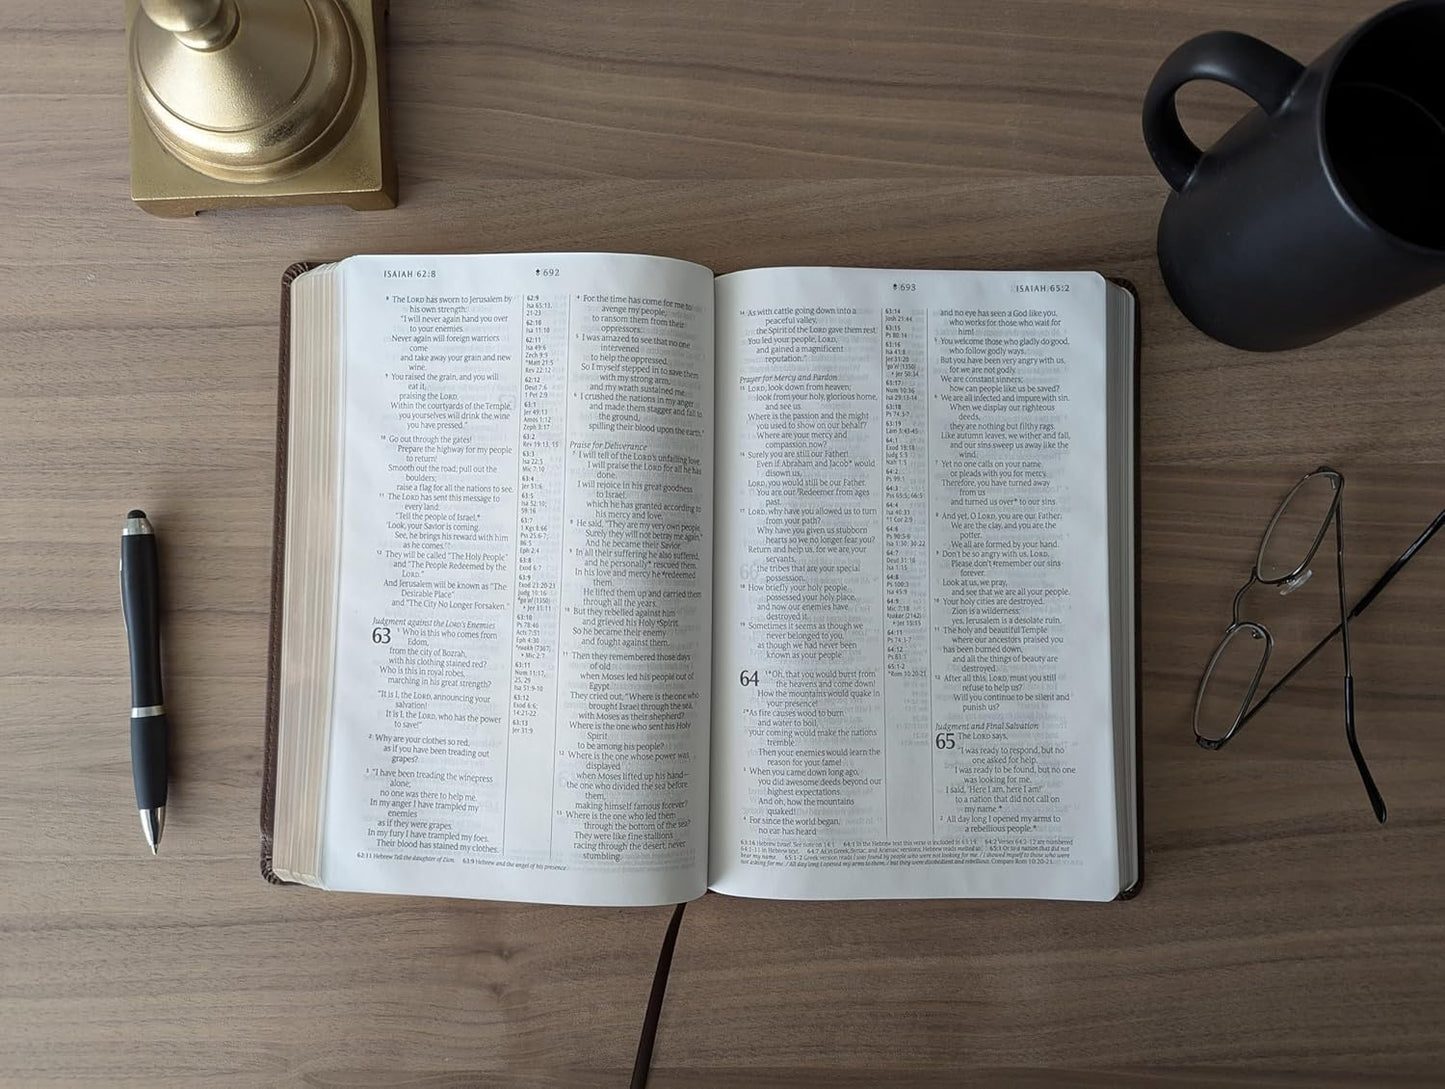 ISAIAH 62:8
692
8 The LORD has sworn to Jerusalem by
his own strength:
"I will never again hand you over
to your enemies.
Never again will foreign warriors
come
and take away your grain and new
wine.
9 You raised the grain, and you will
eat it,
praising the LORD.
Within the courtyards of the Temple,
you yourselves will drink the wine
you have pressed."
10 Go out through the gates!
Prepare the highway for my people
to return!
Smooth out the road; pull out the
boulders;
raise a flag for all the nations to see.
11 The LORD has sent this message to
every land:
"Tell the people of Israel,*
'Look, your Savior is coming.
See, he brings his reward with him
as he comes.'"
12 They will be called "The Holy People"
and "The People Redeemed by the
LORD."
And Jerusalem will be known as "The
Desirable Place"
and "The City No Longer Forsaken."
Judgment against the LORD's Enemies
63 1 Who is this who comes from
Edom,
from the city of Bozrah,
with his clothing stained red?
Who is this in royal robes,
marching in his great strength?
"It is I, the LORD, announcing your
salvation!
It is I, the LORD, who has the power
to save!"
2 Why are your clothes so red,
as if you have been treading out
grapes?
3 "I have been treading the winepress
alone;
no one was there to help me.
In my anger I have trampled my
enemies
as if they were grapes.
In my fury I have trampled my foes.
Their blood has stained my clothes.
62:9
Isa 65:13,
21-23
62:10
Isa 11:10
62:11
Isa 49:6
Zech 9:9
*Matt 21:5
Rev 22:12
62:12
Deut 7:6
1 Pet 2:9
63:1
Jer 49:13
Amos 1:12
Zeph 3:17
63:2
Rev 19:13, 15
63:3
Isa 22:5
Mic 7:10
63:4
Jer 51:6
63:5
Isa 52:10;
59:16
63:7
1 Kgs 8:66
Pss 25:6-7;
86:5
Eph 2:4
63:8
Exod 6:7
63:9
Exod 23:20-23
Judg 10:16
Jer 31:11
63:10
Ps 78:40
Acts 7:51
Eph 4:30
Mic 2:7
63:11
Num 11:17,
25, 29
Isa 51:9-10
63:12
Exod 6:6;
14:21-22
63:13
Jer 31:9
4 For the time has come for me to
avenge my people,
to ransom them from their
oppressors.
5 I was amazed to see that no one
intervened
to help the oppressed.
So I myself stepped in to save them
with my strong arm,
and my wrath sustained me.
6 I crushed the nations in my anger
and made them stagger and fall to
the ground,
spilling their blood upon the earth."
Praise for Deliverance
7 I will tell of the LORD's unfailing love.
I will praise the LORD for all he has
done.
I will rejoice in his great goodness
to Israel,
which he has granted according to
his mercy and love.
8 He said, "They are my very own people.
Surely they will not betray me again."
And he became their Savior.
9 In all their suffering he also suffered,
and he personally* rescued them.
In his love and mercy he redeemed
them.
He lifted them up and carried them
through all the years.
10 But they rebelled against him
and grieved his Holy Spirit.
So he became their enemy
and fought against them.
11 Then they remembered those days
of old
when Moses led his people out of
Egypt.
They cried out, "Where is the one who
brought Israel through the sea,
with Moses as their shepherd?
Where is the one who sent his Holy
Spirit
to be among his people?
12 Where is the one whose power was
displayed
when Moses lifted up his hand—
the one who divided the sea before
them,
making himself famous forever?
13 Where is the one who led them
through the bottom of the sea?
They were like fine stallions
racing through the desert, never
stumbling.
62:11 Hebrew Tell the daughter of Zion. 63:9 Hebrew and the angel of his presence
693
ISAIAH 65:2
14 As with cattle going down into a
peaceful valley,
the Spirit of the LORD gave them rest.
You led your people, LORD,
and gained a magnificent
reputation."
Prayer for Mercy and Pardon
15 LORD, look down from heaven;
look from your holy, glorious home,
and see us.
Where is the passion and the might
you used to show on our behalf?
Where are your mercy and
compassion now?
16 Surely you are still our Father!
Even if Abraham and Jacob* would
disown us,
LORD, you would still be our Father.
You are our Redeemer from ages
past.
17 LORD, why have you allowed us to turn
from your path?
Why have you given us stubborn
hearts so we no longer fear you?
Return and help us, for we are your
servants,
the tribes that are your special
possession.
18 How briefly your holy people
possessed your holy place,
and now our enemies have
destroyed it.
19 Sometimes it seems as though we
never belonged to you,
as though we had never been
known as your people.
64 1*Oh, that you would burst from
the heavens and come down!
How the mountains would quake in
your presence!
2*As fire causes wood to burn
and water to boil,
your coming would make the nations
tremble.
Then your enemies would learn the
reason for your fame!
3 When you came down long ago,
you did awesome deeds beyond our
highest expectations.
And oh, how the mountains
quaked!
4 For since the world began,
no ear has heard
63:14
Josh 21:44
63:15
Ps 80:14
63:16
Isa 41:8
Jer 31:20
Jer 50:34
63:17
Num 10:36
Isa 29:13-14
63:18
Ps 74:3-7
63:19
Lam 3:43-45
64:1
Exod 19:18
Judg 5:5
Nah 1:5
64:2
Ps 99:1
64:3
Pss 65:5; 66:5
64:4
Isa 40:31
*1 Cor 2:9
64:6
Ps 90:5-6
Isa 1:30; 30:22
64:7
Deut 31:18
Isa 1:15
64:8
Ps 100:3
Isa 45:9
64:9
Mic 7:18
Jer 15:15
64:11
Ps 74:3-7
64:12
Ps 83:1
65:1-2
*Rom 10:20-21
and no eye has seen a God like you,
who works for those who wait for
him!
5 You welcome those who gladly do good,
who follow godly ways.
But you have been very angry with us,
for we are not godly.
We are constant sinners;
how can people like us be saved?
6 We are all infected and impure with sin.
When we display our righteous
deeds,
they are nothing but filthy rags.
Like autumn leaves, we wither and fall,
and our sins sweep us away like the
wind.
7 Yet no one calls on your name
or pleads with you for mercy.
Therefore, you have turned away
from us
and turned us over* to our sins.
8 And yet, O LORD, you are our Father.
We are the clay, and you are the
potter.
We all are formed by your hand.
9 Don't be so angry with us, LORD.
Please don't remember our sins
forever.
Look at us, we pray,
and see that we are all your people.
10 Your holy cities are destroyed.
Zion is a wilderness;
yes, Jerusalem is a desolate ruin.
11 The holy and beautiful Temple
where our ancestors praised you
has been burned down,
and all the things of beauty are
destroyed.
12 After all this, LORD, must you still
refuse to help us?
Will you continue to be silent and
punish us?
Judgment and Final Salvation
65 The LORD says,
"I was ready to respond, but no
one asked for help.
I was ready to be found, but no one
was looking for me.
I said, 'Here I am, here I am!'
to a nation that did not call on
my name.*
2 All day long I opened my arms to
a rebellious people.*
63:16 Hebrew Israel. See note on 14:1. 64:1 In the Hebrew text this verse is included in 63:19. 64:2 Verses 64:2-12 are numbered
64:1-11 in Hebrew text. 64:7 As in Greek, Syriac, and Aramaic versions; Hebrew reads melted us. 65:1 Or to a nation that did not
bear my name. 65:1-2 Greek version reads I was found by people who were not looking for me. / I showed myself to those who were
not asking for me. / All day long I opened my arms to them, / but they were disobedient and rebellious. Compare Rom 10:20-21.